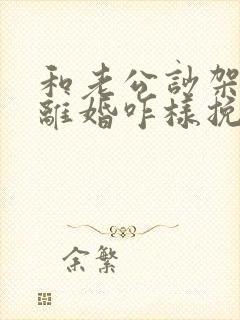 和老公訃架
離婚咋樣挽
余繁